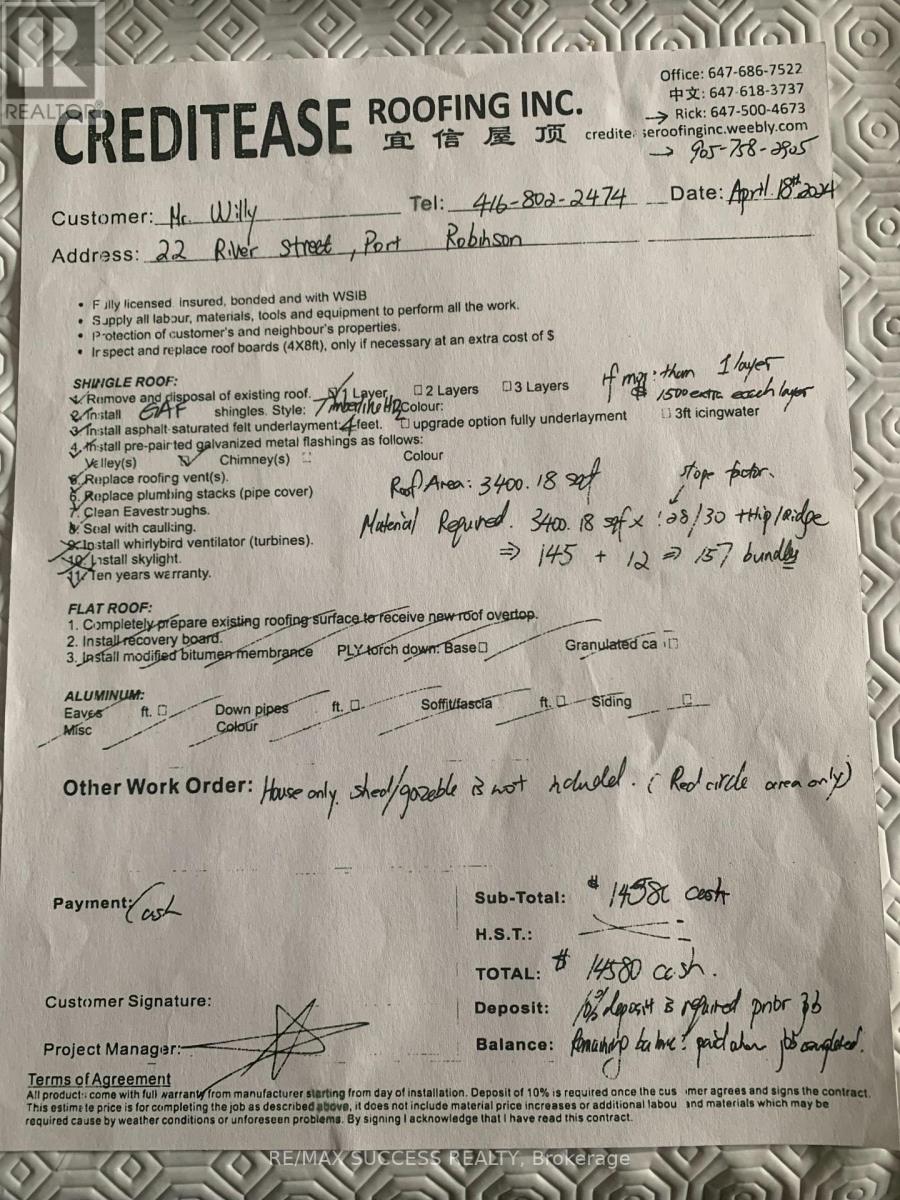 REALTOR®
CREDITEASE ROOFING INC.
宜信屋顶
Office: 647-686-7522
中文: 647-618-3737
→ Rick: 647-500-4673
credite seroofinginc.weebly.com
→ 905-758-2905
Customer: Mr. Willy Tel: 416-802-2474 Date: April 18th 2024
Address: 22 River Street, Port Robinson
• Fully licensed, insured, bonded and with WSIB
• Supply all labour, materials, tools and equipment to perform all the work.
• Protection of customer's and neighbour's properties.
• Inspect and replace roof boards (4X8ft), only if necessary at an extra cost of $
SHINGLE ROOF:
1. Remove and disposal of existing roof. ☑1 Layer ☐2 Layers ☐3 Layers
If more than 1 layer
$1500 extra each layer
2. Install GAF shingles. Style: Timberline HDZ Colour:
3. Install asphalt saturated felt underlayment 4 feet. ☐ upgrade option fully underlayment ☐ 3ft icingwater
4. Install pre-painted galvanized metal flashings as follows:
Valley(s) ☑ Chimney(s) ☐ Colour
5. Replace roofing vent(s).
6. Replace plumbing stacks (pipe cover)
7. Clean Eavestroughs.
8. Seal with caulking.
9. Install whirlybird ventilator (turbines).
10. Install skylight.
11. Ten years warranty.
Roof Area: 3400.18 sqf
slope factor.
Material Required. 3400.18 sqf x 1.28/30 + Hip/Ridge
⇒ 145 + 12 ⇒ 157 bundles
FLAT ROOF:
1. Completely prepare existing roofing surface to receive new roof overtop.
2. Install recovery board.
3. Install modified bitumen membrance PLY torch down: Base☐ Granulated ca ☐
ALUMINUM:
Eaves ft. ☐ Down pipes ft. ☐ Soffit/fascia ft. ☐ Siding ☐
Misc Colour
Other Work Order: House only. shed/gozeble is not included. (Red circle area only)
Payment: Cash
Sub-Total: $ 14580 cash
H.S.T.:
TOTAL: $ 14580 cash.
Customer Signature:
Deposit: 10% deposit is required prior job
Project Manager:
Balance: Remaining balance paid when job completed.
Terms of Agreement
All products come with full warranty from manufacturer starting from day of installation. Deposit of 10% is required once the cus omer agrees and signs the contract.
This estimate price is for completing the job as described above, it does not include material price increases or additional labou and materials which may be
required cause by weather conditions or unforeseen problems. By signing I acknowledge that I have read this contract.
RE/MAX SUCCESS REALTY, Brokerage